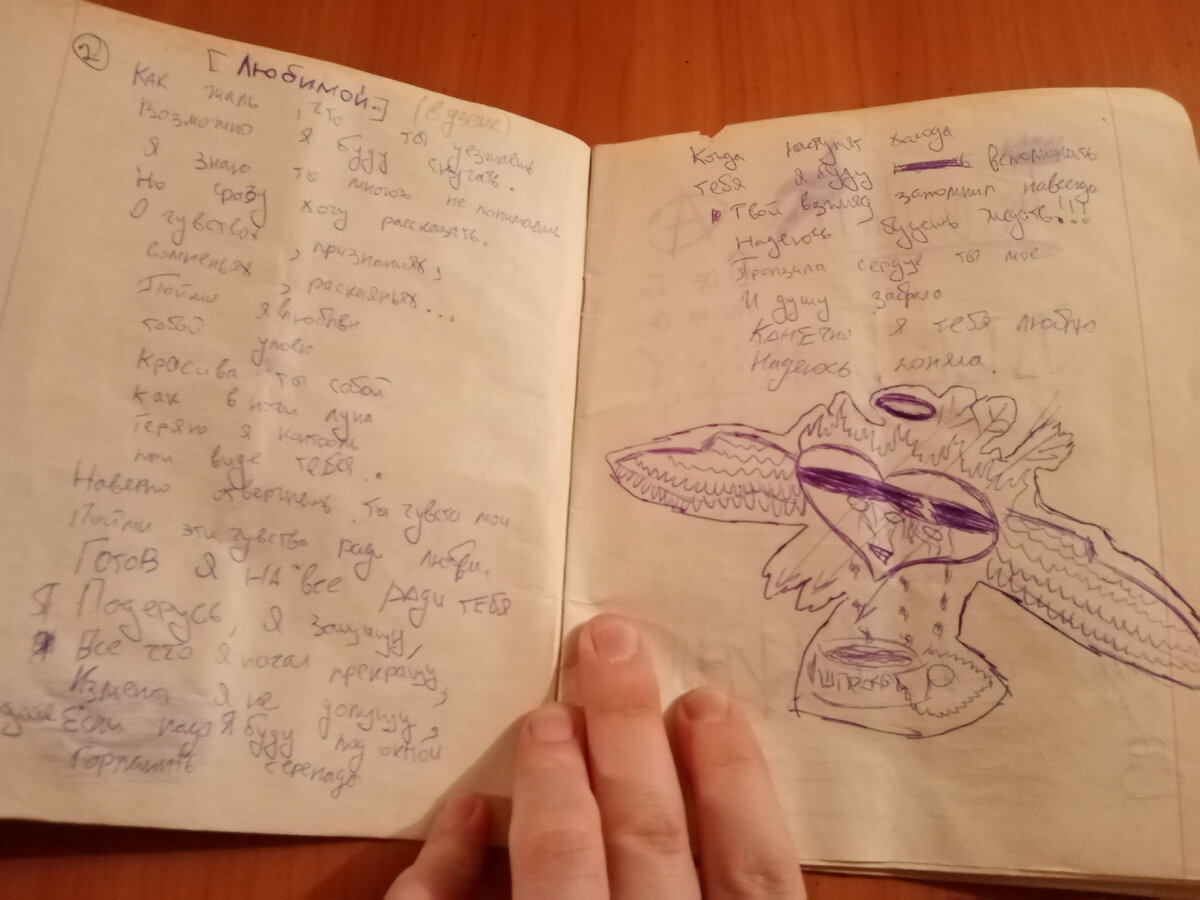 2
[Любимой..] (в дзене)
Как жаль, что ты уезжаешь
Возможно я буду скучать.
Я знаю ты многого не понимаешь
Но сразу хочу рассказать.
О чувствах, признаниях,
Сомненьях, раскаяньях...
Пойми я в любви
тобой
Красива ты собой
Как в ночи луна
Теряю я контроль
при виде тебея..
Наверно отвергнешь ты чувста мои
Пойми эти чувства ради любви.
Готов я на все ради тебя
Я Подерусь, я защищу,
Все что я начал прекращу,
Измена я не допущу,
даже Если надо Я буду под окном
серенада
Когда наступят холода
тебя я буду вспоминать
Твой взгляд запомнил навсегда
Надеюсь будешь ждать!!!
Пронзила сердце ты мое
И душу забрала
Канечно я тебя люблю
Надеюсь поняла.